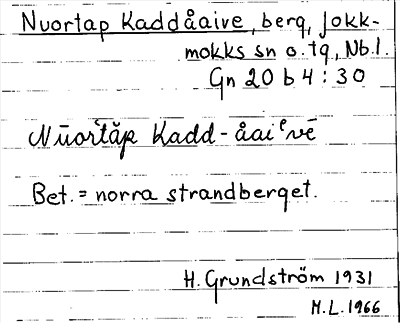 Nuortap Kaddåaive, berg, Jokk-
mokks sn o. tg, Nb.l.
Gn 20 b 4 : 30
Nūortăp Kadd-åaiᵉvē
Bet. = norra strandberget.
H. Grundström 1931
M.L. 1966